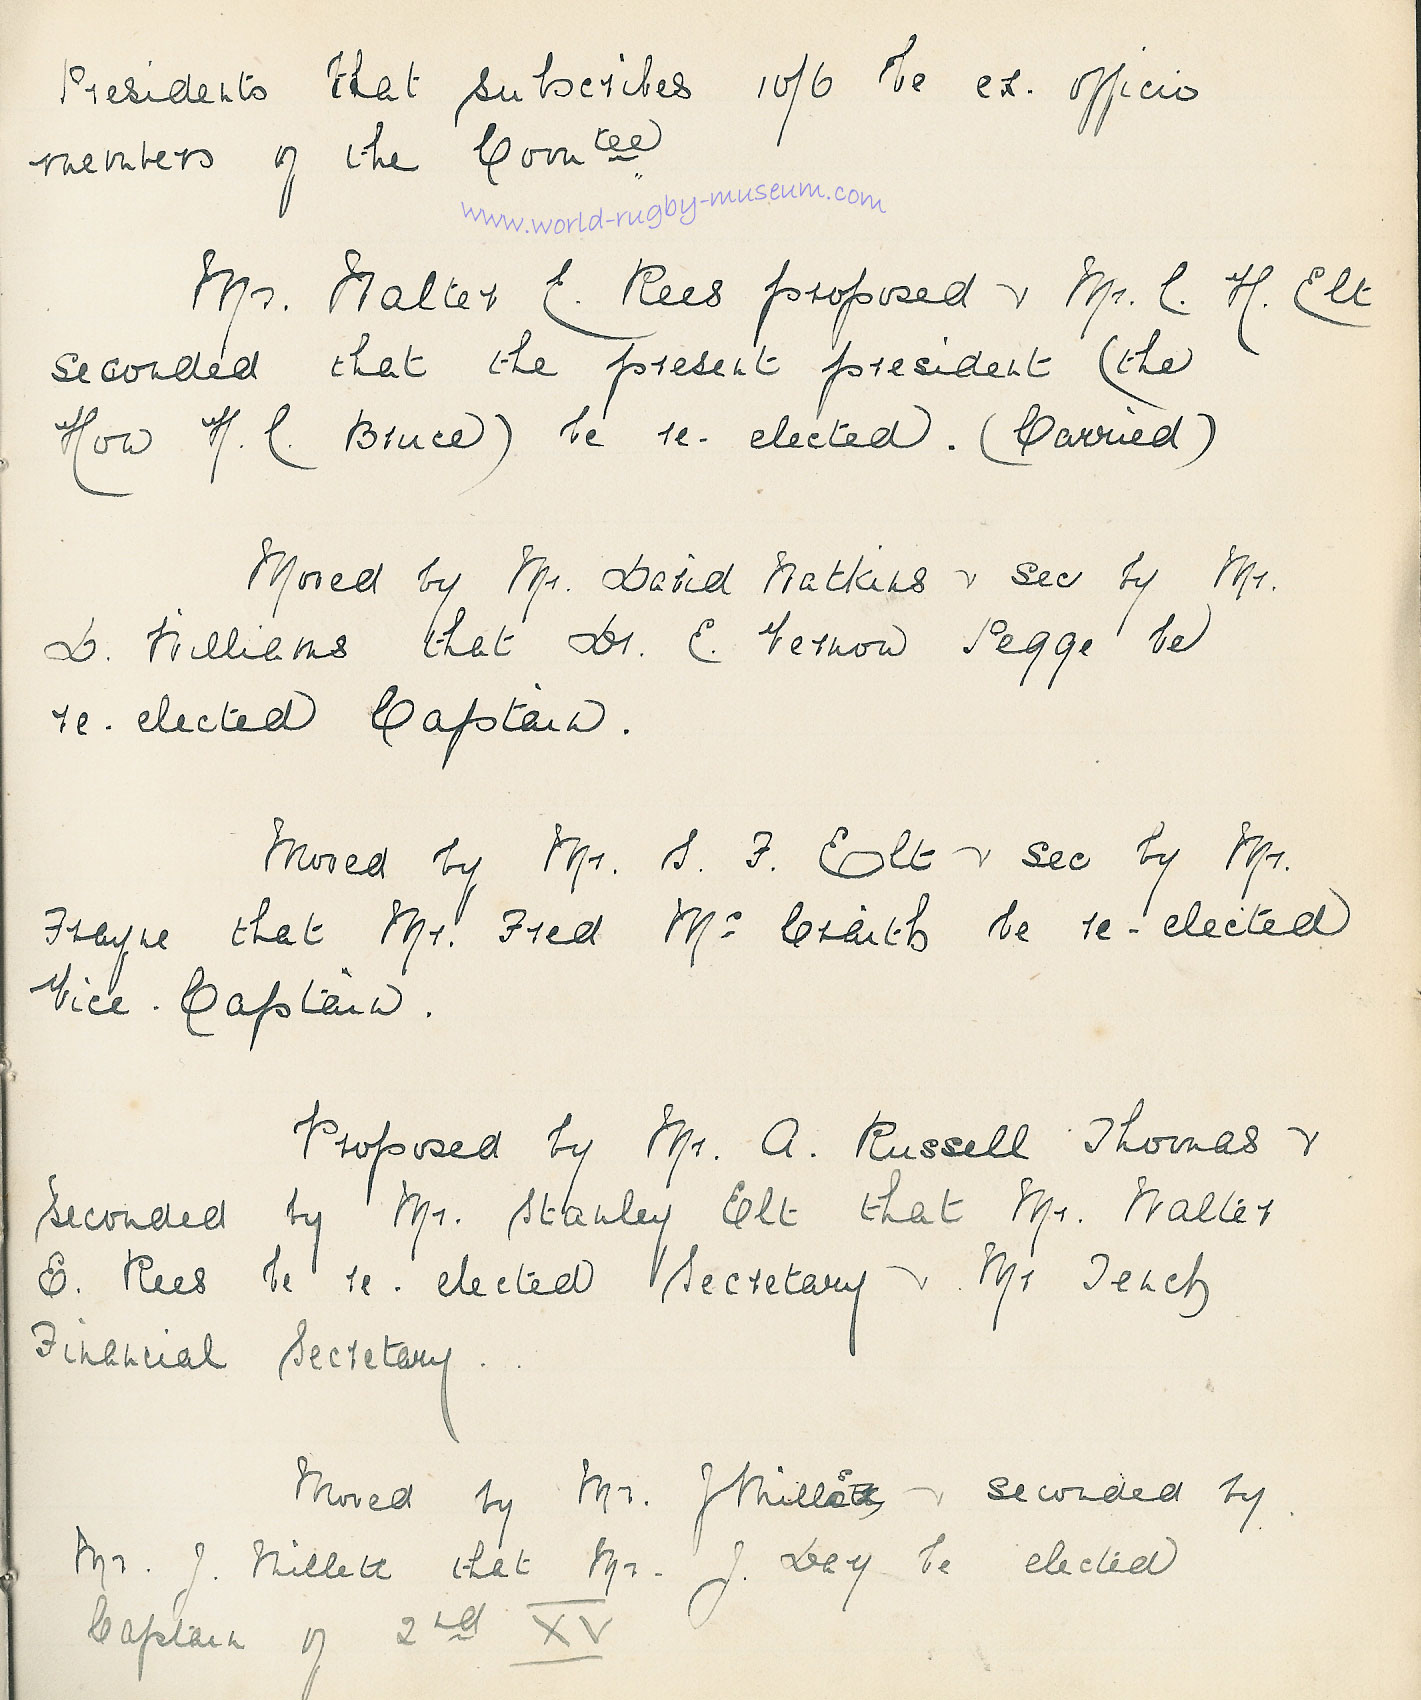 Presidents that subscribes 10/6 be ex. officio
members of the Comtee
www.world-rugby-museum.com
Mr. Walter E. Rees proposed & Mr. C. H. Elt
seconded that the present president (the
Hon H. C. Bruce) be re-elected. (Carried)
Moved by Mr. David Watkins & sec by Mr.
D. Williams that Dr. E. Vernon Pegge be
re-elected Captain.
Moved by Mr. S. F. Elt & sec by Mr.
Frayne that Mr. Fred Mc Craith be re-elected
Vice-Captain.
Proposed by Mr. A. Russell Thomas &
Seconded by Mr. Stanley Elt that Mr. Walter
E. Rees be re-elected Secretary & Mr Tench
Financial Secretary.
Moved by Mr. J & seconded by
Mr. J. that Mr. J. Day be elected
Captain of 2nd XV